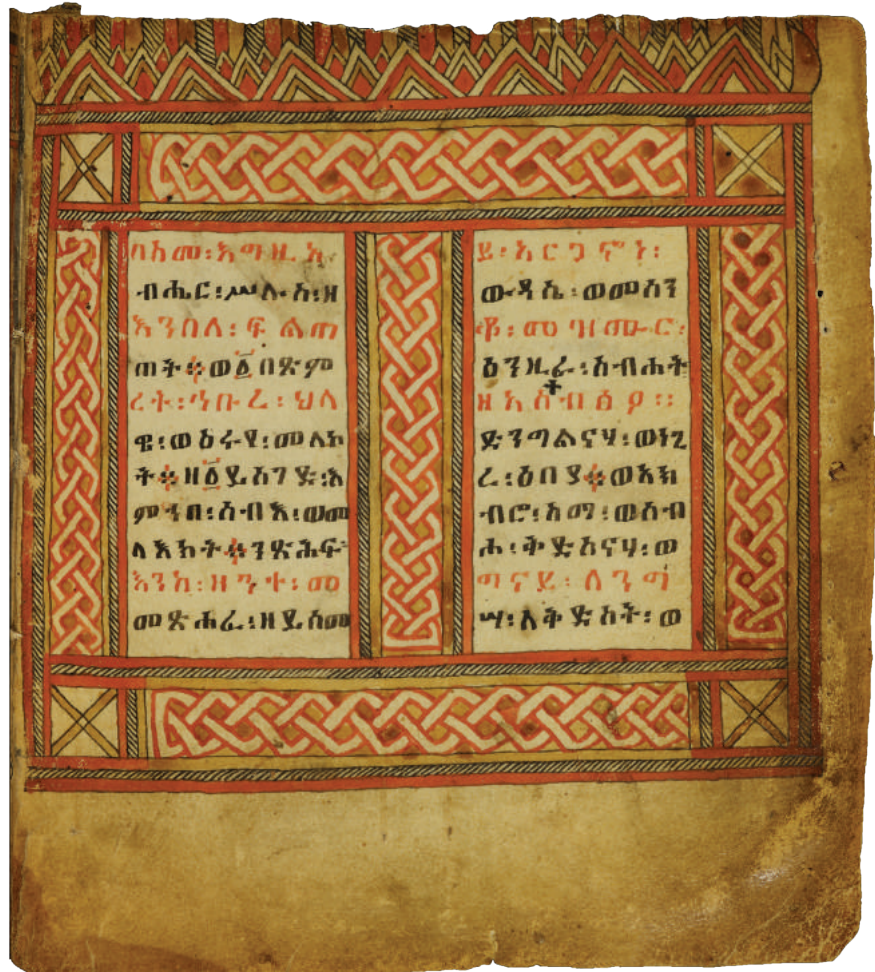 በስመ፡ እግዚአ
ብሔር፡ሥሉስ፡ዘ
እንበለ፡ ፍ ልጠ
ጠት፨ወ፩በጽም
ረት፡ኅቡረ፡ ህላ
ዌ፡ወዕሩየ፡መለኮ
ት፨ዘ፩ይሰገድ፡እ
ምኀበ፡ሰብእ፡ወመ
ላእክት፨ንጽሕፍ
እንከ፡ ዘንተ፡ መ
መጽሐፈ፡ዘይሰመ
ይ፡ አርጋኖነ፡
ውዳሴ፡ወመሰን
ቆ፡ መዝሙር፡
ዕንዚራ፡ስብሐት
ት
ዘአስብዕዖ።
ድንግልናሃ፡ወነጊ
ረ፡ዕበያ፨ወአክ
ብሮ፡ስማ፡ወስብ
ሐ፡ቅድስናሃ፡ወ
ግናይ፡ ለንግ
ሣ፡ለቅድስት፡ወ